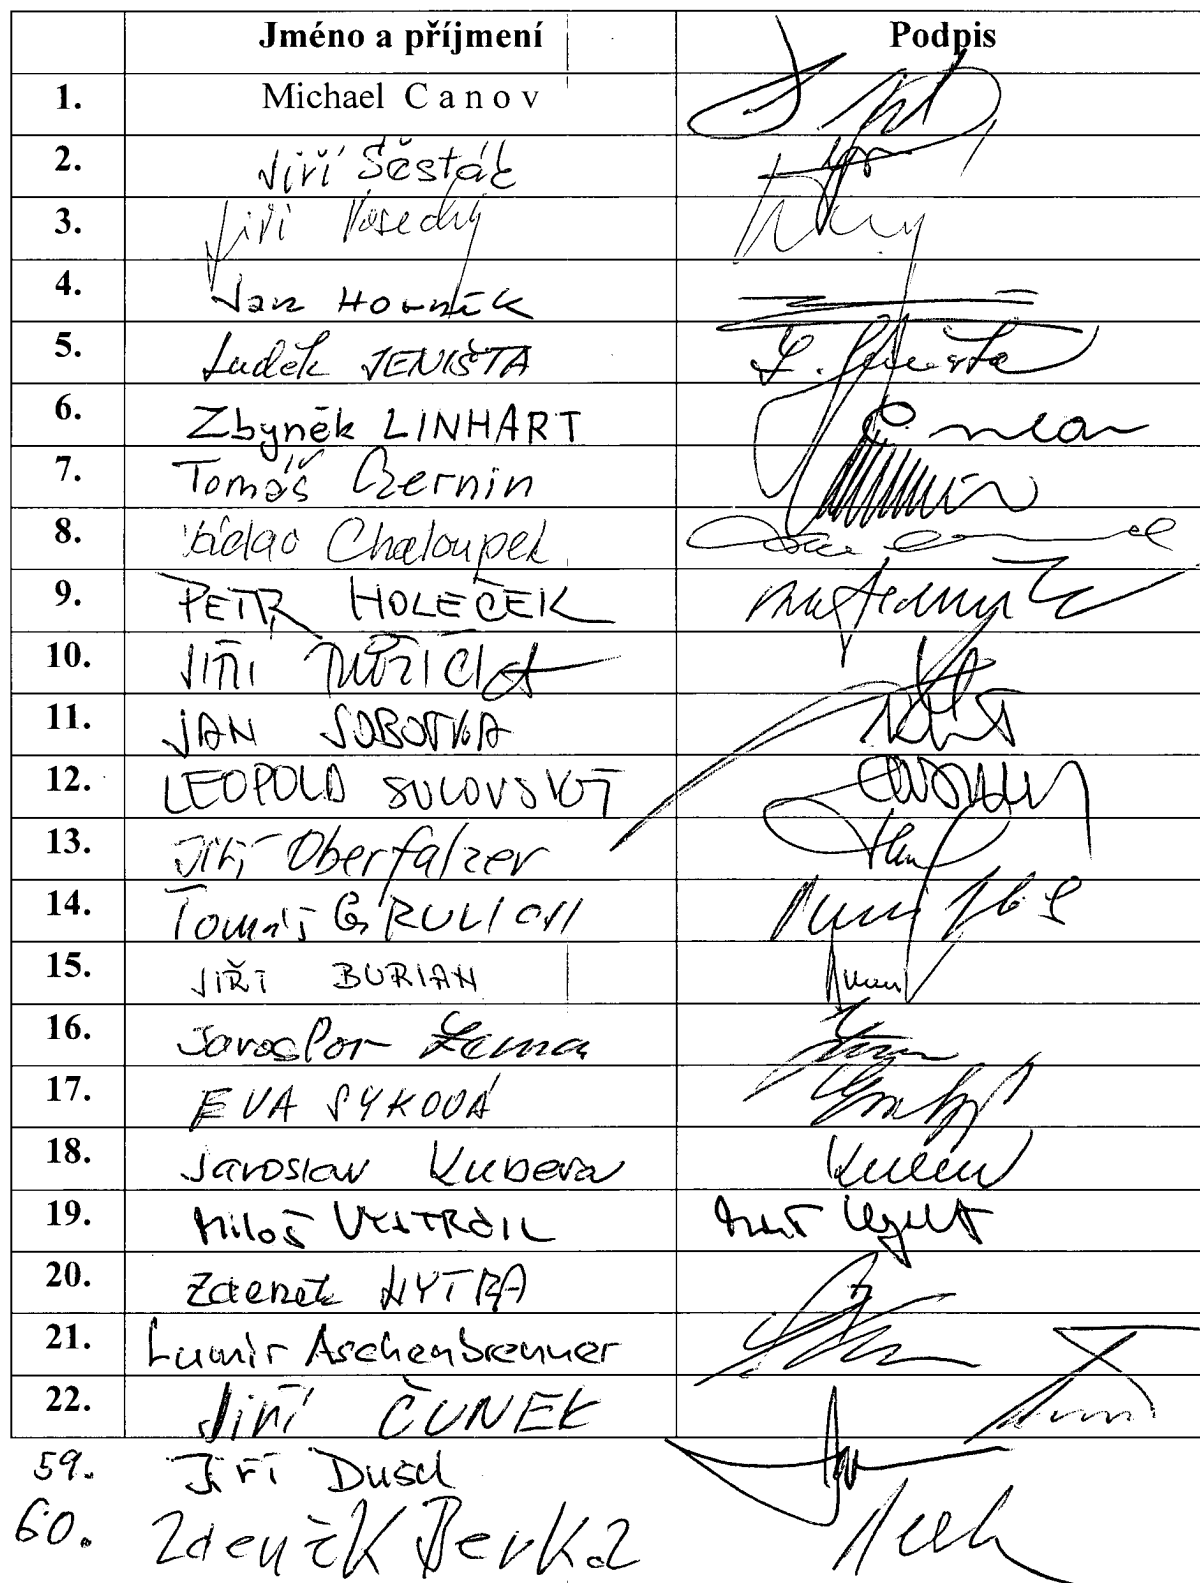 Jméno a příjmení Podpis
1. Michael C a n o v
2. Jiří Šesták
3. Jiří Vosecký
4. Jan Horník
5. Luděk JENIŠTA L. Jeništa
6. Zbyněk LINHART
7. Tomáš Czernin
8. Václav Chaloupek
9. PETR HOLEČEK
10. JIŘÍ RŮŽIČKA
11. JAN SOBOTKA
12. LEOPOLD SULOVSKÝ
13. Jiří Oberfalzer
14. Tomáš GRULICH
15. JIŘÍ BURIAN
16. Jaroslav Zeman
17. EVA SYKOVÁ
18. Jaroslav Kubera
19. Miloš VYSTRČIL
20. Zdeněk NYTRA
21. Lumír Aschenbrenner
22. Jiří ČUNEK
59. Jiří Dušek
60. Zdeněk Berka